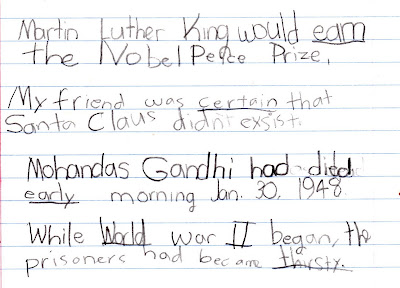 Martin Luther King would earn
the Nobel Peace Prize.
My friend was certain that
Santa Claus didn't exsist.
Mohandas Gandhi had died
early morning Jan. 30, 1948
While World war II began, the
prisoners had became thirsty.